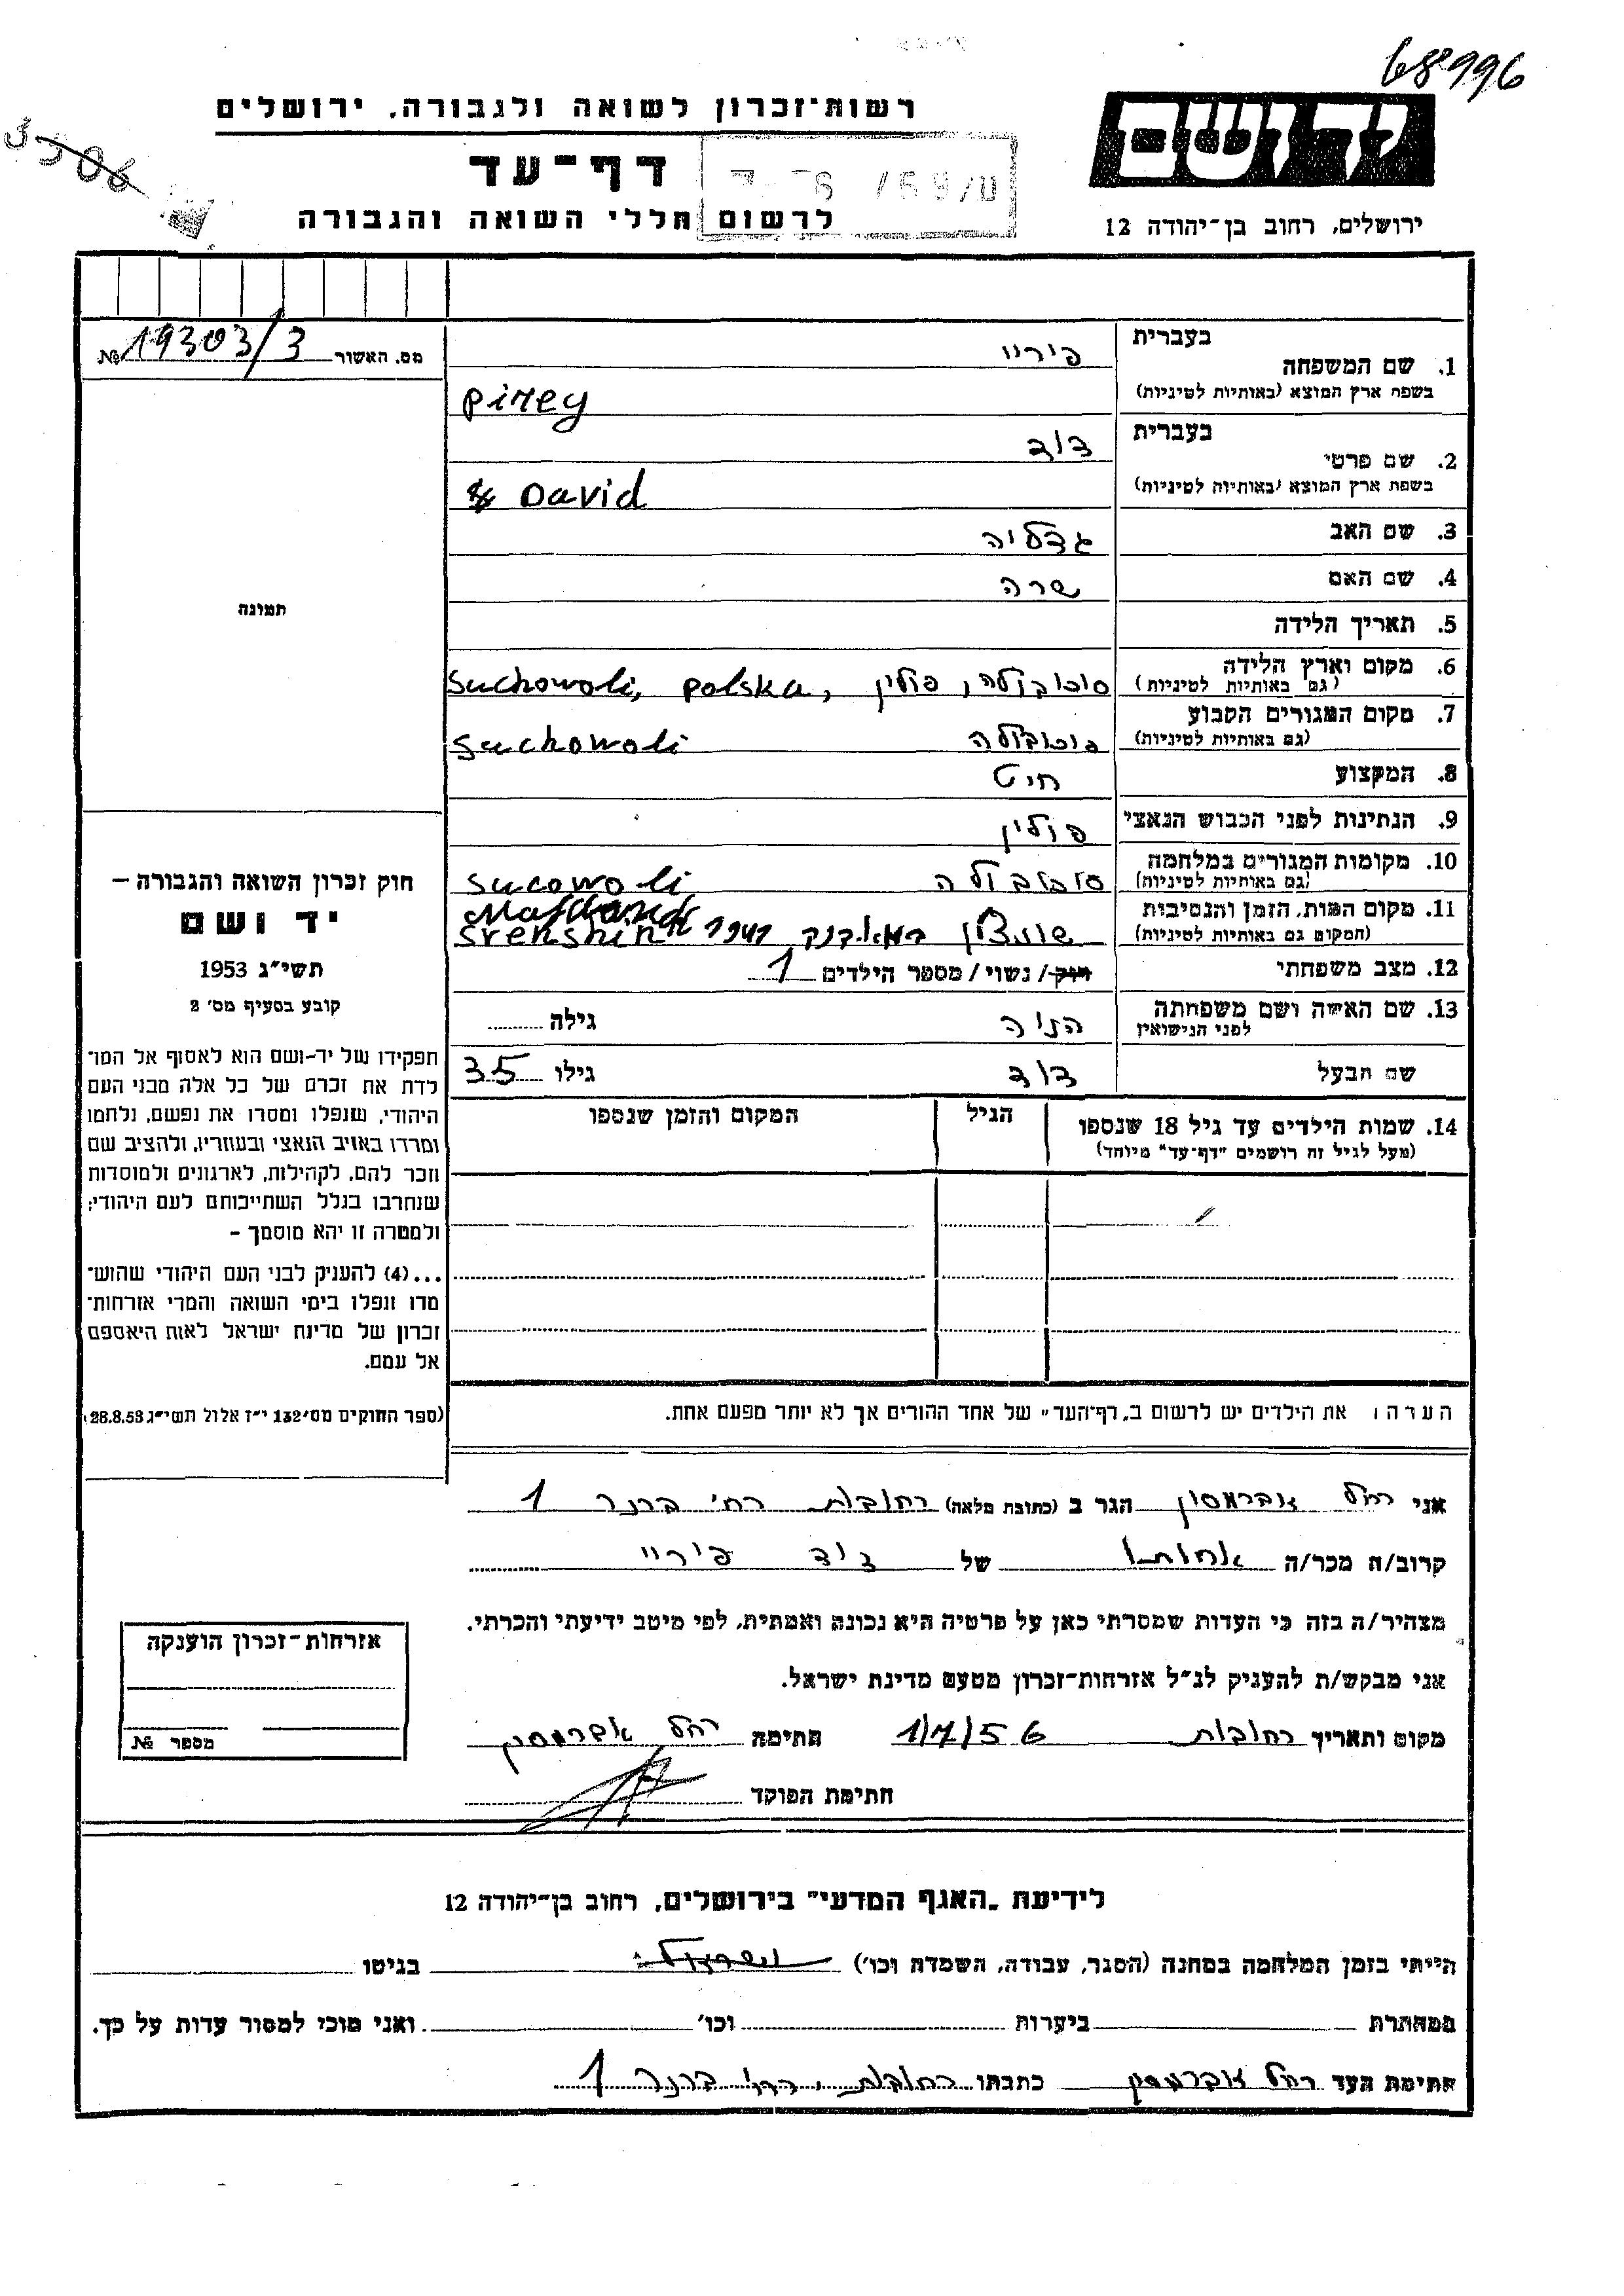 68996
רשות-זכרון לשואה ולגבורה, ירושלים
דף-עד
לרשום חללי השואה והגבורה
יד ושם
ירושלים, רחוב בן-יהודה 12
מס. האשור № 19303/3
1. שם המשפחה בעברית פיריי
בשפת ארץ המוצא (באותיות לטיניות) Pirey
2. שם פרטי בעברית דוד
בשפת ארץ המוצא (באותיות לטיניות) David
3. שם האב גדליה
4. שם האם שרה
5. תאריך הלידה
6. מקום וארץ הלידה סוכובולה, פולין, Suchowoli, polska
(גם באותיות לטיניות)
7. מקום המגורים הקבוע סוכובולה Suchowoli
(גם באותיות לטיניות)
8. המקצוע חיט
9. הנתינות לפני הכבוש הנאצי פולין
10. מקומות המגורים במלחמה סוכובולה Sucowoli
(גם באותיות לטיניות)
11. מקום המות, הזמן והנסיבות
(המקום גם באותיות לטיניות)
12. מצב משפחתי רווק / נשוי / מספר הילדים 1
13. שם האשה ושם משפחתה הנוה גילה
לפני הנישואין
שם הבעל דוד גילו 35
14. שמות הילדים עד גיל 18 שנספו הגיל המקום והזמן שנספו
(מעל לגיל זה רושמים "דף-עד" מיוחד)
הערה: את הילדים יש לרשום ב"דף-העד" של אחד ההורים אך לא יותר מפעם אחת.
תמונה
חוק זכרון השואה והגבורה –
יד ושם
תשי"ג 1953
קובע בסעיף מס' 2
תפקידו של יד-ושם הוא לאסוף אל המו־
לדת את זכרם של כל אלה מבני העם
היהודי, שנפלו ומסרו את נפשם, נלחמו
ומרדו באויב הנאצי ובעוזריו, ולהציב שם
וזכר להם, לקהילות, לארגונים ולמוסדות
שנחרבו בגלל השתייכותם לעם היהודי;
ולמטרה זו יהא מוסמך –
...(4) להעניק לבני העם היהודי שהוש־
מדו ונפלו בימי השואה והמרי אזרחות־
זכרון של מדינת ישראל לאות היאספם
אל עמם.
(ספר החוקים מס' 132 י"ז אלול תשי"ג 28.8.53)
אני רחל אברמסון הגר ב (כתובת מלאה) רחובות רח' ברנר 1
קרוב/ה מכר/ה אחותו של דוד פיריי
מצהיר/ה בזה כי העדות שמסרתי כאן על פרטיה היא נכונה ואמתית, לפי מיטב ידיעתי והכרתי.
אני מבקש/ת להעניק לנ"ל אזרחות-זכרון מטעם מדינת ישראל.
מקום ותאריך רחובות 1/7/56 חתימה רחל אברמסון
חתימת הפוקד
אזרחות-זכרון הוענקה
מספר №
לידיעת "האגף המדעי" בירושלים, רחוב בן-יהודה 12
הייתי בזמן המלחמה במחנה (הסגר, עבודה, השמדה וכו') בגיטו
במחתרת ביערות וכו' ואני מוכן למסור עדות על כך.
חתימת העד רחל אברמסון כתבתו רחובות, רח' ברנר 1